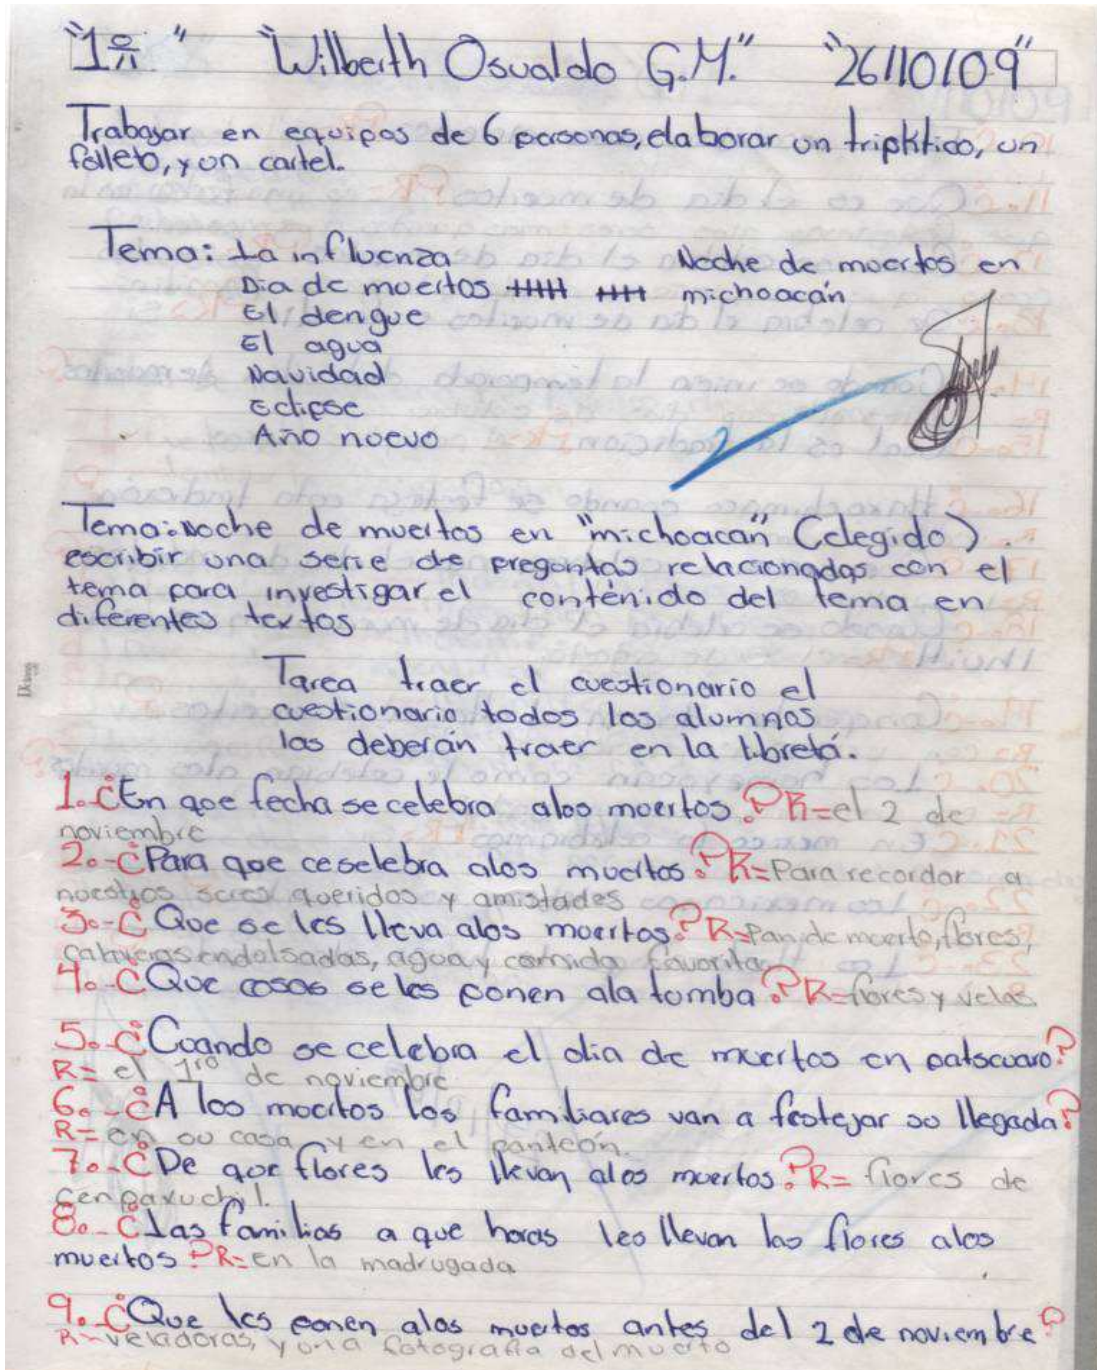 "1°" "Wilberth Osvaldo G.M." "26110109"
Trabajar en equipos de 6 personas, elaborar un triptitico, un
folleto, y un cartel.
Tema: La influenza Noche de muertos en
Dia de muertos michoacán
El dengue
El agua
Navidad
Eclipse
Año nuevo
Tema: Noche de muertos en "michoacán" (elegido).
escribir una serie de preguntas relacionadas con el
tema para investigar el conténido del tema en
diferentes textos
Tarea traer el cuestionario el
cuestionario todos los alumnos
las deberán traer en la libretá.
1.-¿En que fecha se celebra alos muertos? R=el 2 de
noviembre
2.-¿Para que ceselebra alos muertos? R=Para recordar a
nuestros seres queridos y amistades
3.-¿Que se les lleva alos muertos? R=Pan de muerto, flores,
calaveras endolsadas, agua y comida favorita
4.-¿Que cosas se les ponen ala tomba? R=flores y velas
5.-¿Cuando se celebra el dia de muertos en patscuaro?
R= el 1ro de noviembre
6.-¿A los muertos los familiares van a festejar su llegada?
R= en su casa y en el panteón.
7.-¿De que flores les llevan alos muertos? R= flores de
cenpaxuchil.
8.-¿Las familias a que horas les llevan las flores alos
muertos? R=en la madrugada
9.-¿Que les ponen alos muertos antes del 2 de noviembre?
R=veladoras, y una fotografia del muerto